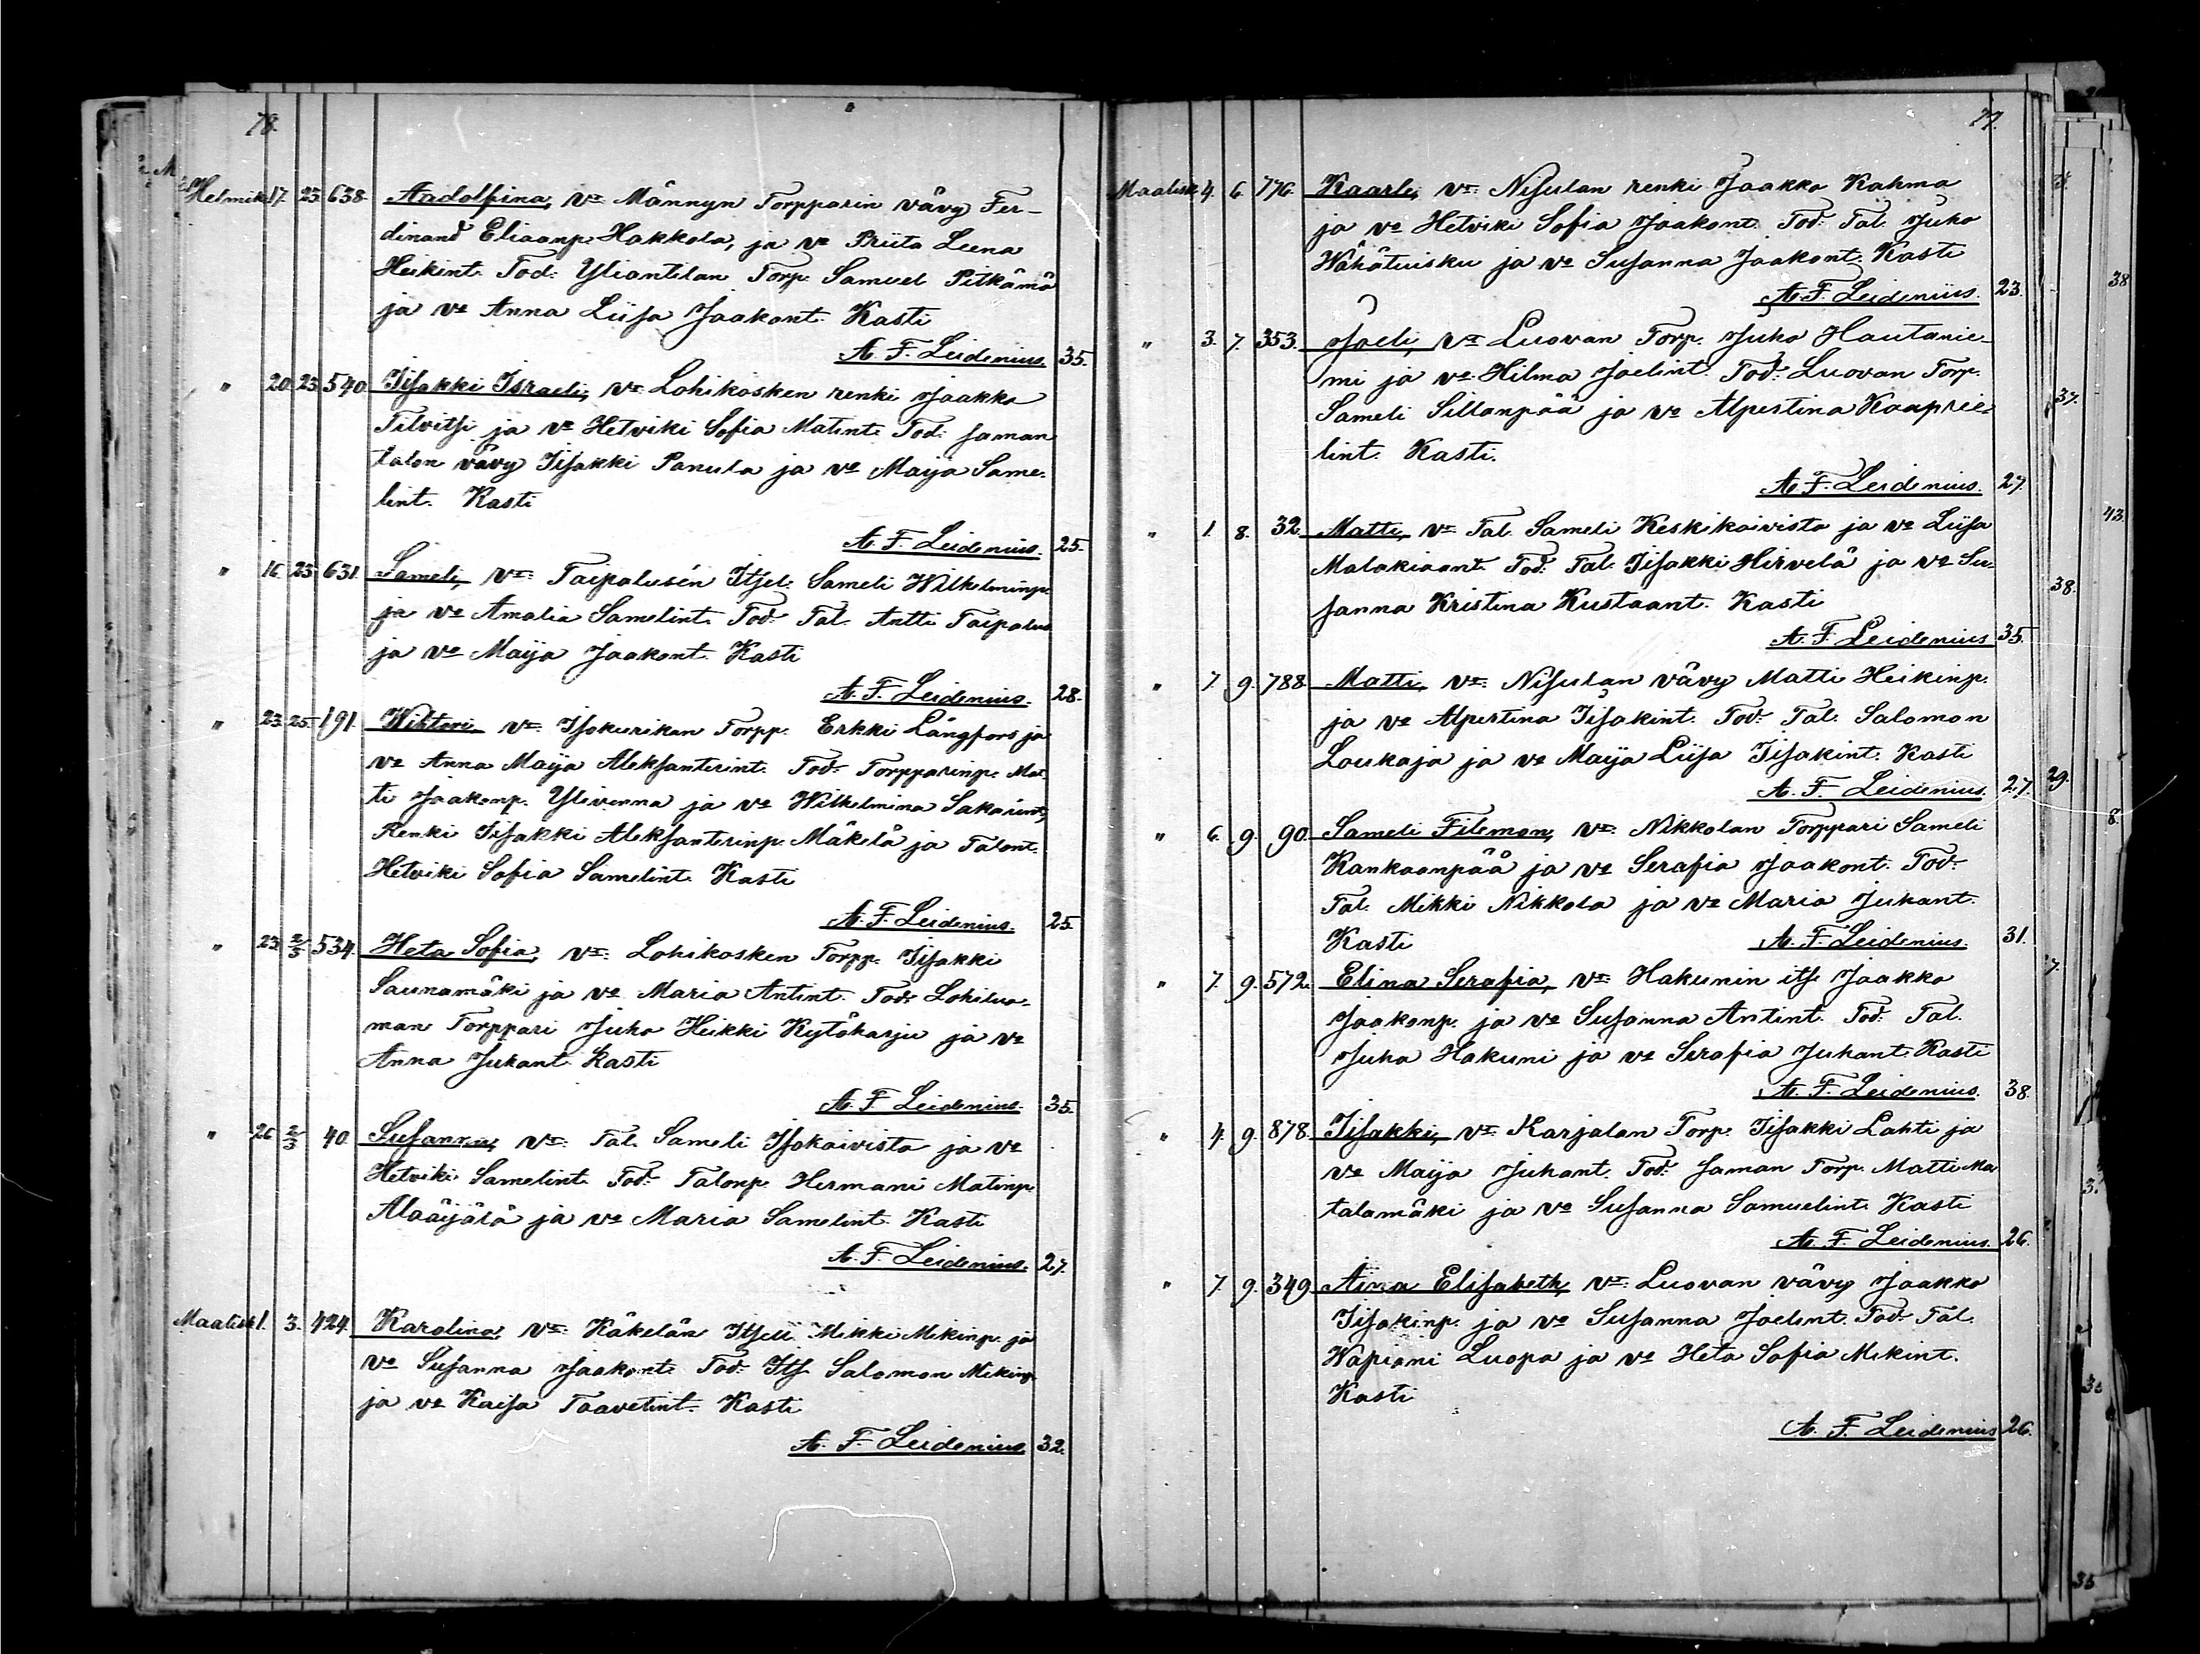 78.
Helmik. 17. 23. 638. Aadolfina, vt. Männyn Torpparin vävy Fer-
dinand Eliaanp. Hakkola, ja vo Priita Leena
Heikint. Tod: Yliantilan Torp. Samuel Pitkämä
ja vo Anna Liisa Jaakont. Kasti
A. F. Leidenius. 35.
" 20. 23. 540. Iisakki Israeli, vt. Lohikosken renki Jaakko
Tilvitsi ja vo Hetviki Sofia Matint. Tod: saman
talon vävy Iisakki Panula ja vo Maija Same-
lint. Kasti
A. F. Leidenius. 25.
" 16. 23. 631. Sameli, vt. Taipalusen Itsel. Sameli Wilhelminp.
ja vo Amalia Samelint. Tod: Tal. Antti Taipalus
ja vo Maija Jaakont. Kasti
A. F. Leidenius. 28.
" 23. 25. 191. Wihtori, vt. Isokurikan Torpp. Erkki Långfors ja
vo Anna Maija Aleksanterint. Tod: Torpparinp. Mat-
ti Jaakonp. Ylivenna ja vo Wilhelmina Sakarint.,
Renki Iisakki Aleksanterinp. Mäkelä ja Talont.
Hetviki Sofia Samelint. Kasti
A. F. Leidenius. 25.
" 23. 2/3 534. Heta Sofia, vt. Lohikosken Torpp. Iisakki
Saunamäki ja vo Maria Antint. Tod: Lohiluo-
man Torppari Juho Heikki Kytökarju ja vo
Anna Juhant. Kasti
A. F. Leidenius. 35.
" 26 2/3 40. Susanna, vt. Tal. Sameli Isokoivisto ja vo
Hetviki Samelint. Tod: Talonp. Hermani Matinp.
Alaäijälä ja vo Maria Samelint. Kasti
A. F. Leidenius. 27.
Maalisk. 1. 3. 424. Karolina, vt. Käkelän Itsell. Mikki Mikinp. ja
vo Susanna Jaakont. Tod: Its. Salomon Mikinp.
ja vo Kaisa Taavetint. Kasti
A. F. Leidenius. 32.
77.
Maalisk. 4. 6. 776. Kaarle, vt. Nisulan renki Jaakko Kahma
ja vo Hetviki Sofia Jaakont. Tod: Tal. Juho
Wähätuisku ja vo Susanna Jaakont. Kasti
A. F. Leidenius. 23.
" 3. 7. 353. Joeli, vt. Luovan Torp. Juho Hautanie-
mi ja vo Hilma Joelint. Tod: Luovan Torp.
Sameli Sillanpää ja vo Alpertina Kaaprie-
lint. Kasti.
A. F. Leidenius. 27.
" 1. 8. 32. Matti, vt. Tal. Sameli Keskikoivisto ja vo Liisa
Malakiaant. Tod: Tal. Iisakki Hirvelä ja vo Su-
sanna Kristina Kustaant. Kasti
A. F. Leidenius 35.
" 7. 9. 788. Matti, vt. Nisulan vävy Matti Heikinp.
ja vo Alpertina Iisakint. Tod: Tal. Salomon
Loukaja ja vo Maija Liisa Iisakint. Kasti
A. F. Leidenius. 27.
" 6. 9. 90. Sameli Filemon, vt. Nikkolan Torppari Sameli
Kankaanpää ja vo Serafia Jaakont. Tod:
Tal. Mikki Nikkola ja vo Maria Juhant.
Kasti A. F. Leidenius. 31.
" 7. 9. 572. Elina Serafia, vt. Hakunin its. Jaakko
Jaakonp. ja vo Susanna Antint. Tod: Tal.
Juha Hakuni ja vo Serafia Juhant. Kasti
A. F. Leidenius. 38.
" 4. 9. 878. Iisakki, vt. Karjalan Torp. Iisakki Lahti ja
vo Maija Juhant. Tod: saman Torp. Matti Ma
talamäki ja vo Susanna Samuelint. Kasti
A. F. Leidenius. 26.
" 7. 9. 349. Aina Elisabeth, vt. Luovan vävy Jaakko
Iisakinp. ja vo Susanna Joelint. Tod: Tal.
Wapiani Luopa ja vo Heta Sofia Mikint.
Kasti
A. F. Leidenius 26.